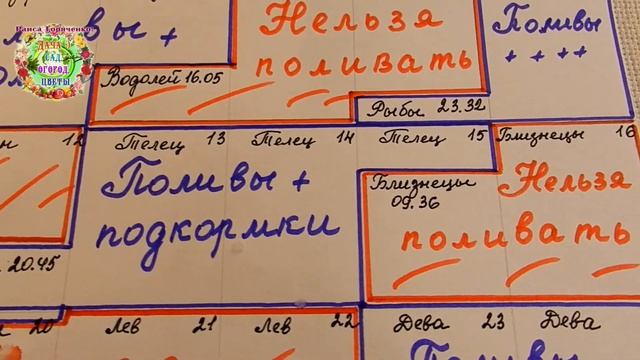 Раиса Горяченко
ДАЧА
САД
ОГОРОД
ЦВЕТЫ
Нельзя
поливать
Поливы
++++
Водолей 16.05
Рыбы 23.32
12
Телец 13
Телец 14
Телец 15
Близнецы 16
Поливы +
подкормки
Близнецы
09.36
Нельзя
поливать
20.45
20
Лев 21
Лев 22
Дева 23
Дева
Поливы